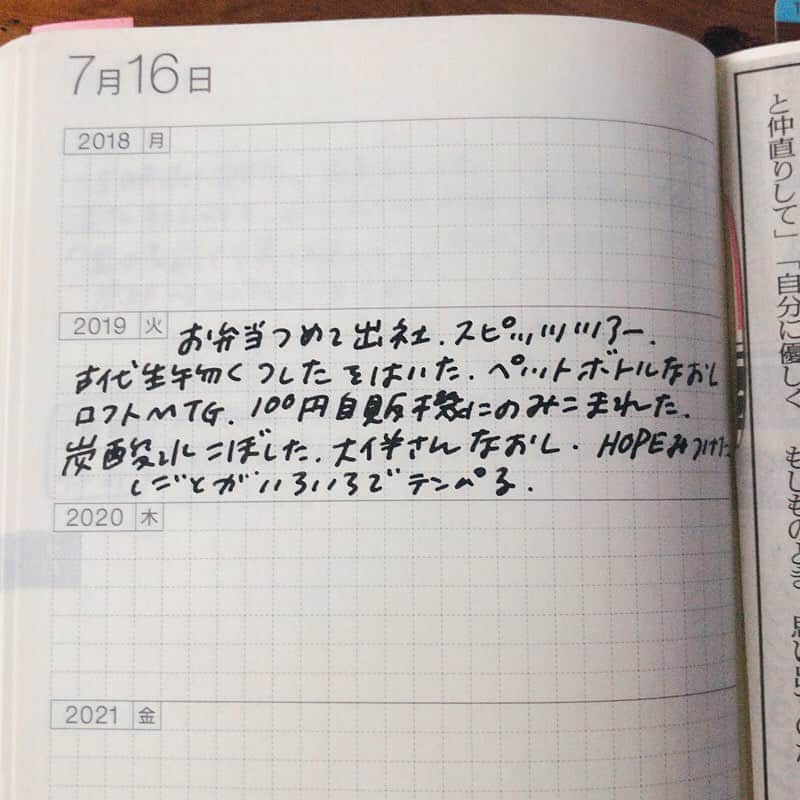 7月16日
2018 月
2019 火
お弁当つめて出社. スピッツツアー.
古代生物くつしたをはいた. ペットボトルなおし
ロフトMTG. 100円自販機にのみこまれた.
炭酸水こぼした. 大伴さんなおし. HOPEみつけた
しごとがいろいろでテンパる.
2020 木
2021 金
と仲直りして」「自分に優しく もしものとき 思い出